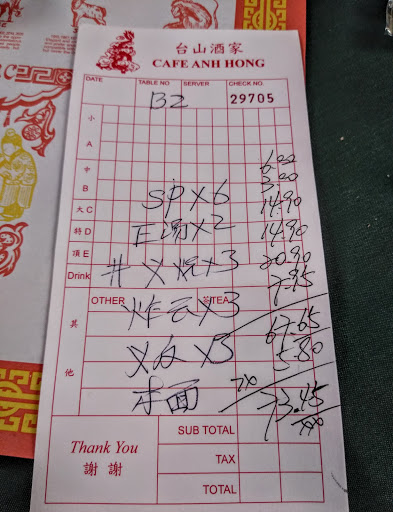 台山酒家
CAFE ANH HONG
DATE TABLE NO. SERVER CHECK NO.
B2 29705
小
A
中
B 6.00
3.00
大 C SP x 6 14.90
特 D 王湯 x 2 14.90
頂 E 20.90
Drink # 义燒 x 3 7.95
OTHER 茶TEA
其 炸云 x 3 67.65
他 义反 x 3 5.80
才面 73.45
Thank You
謝謝
SUB TOTAL
TAX
TOTAL